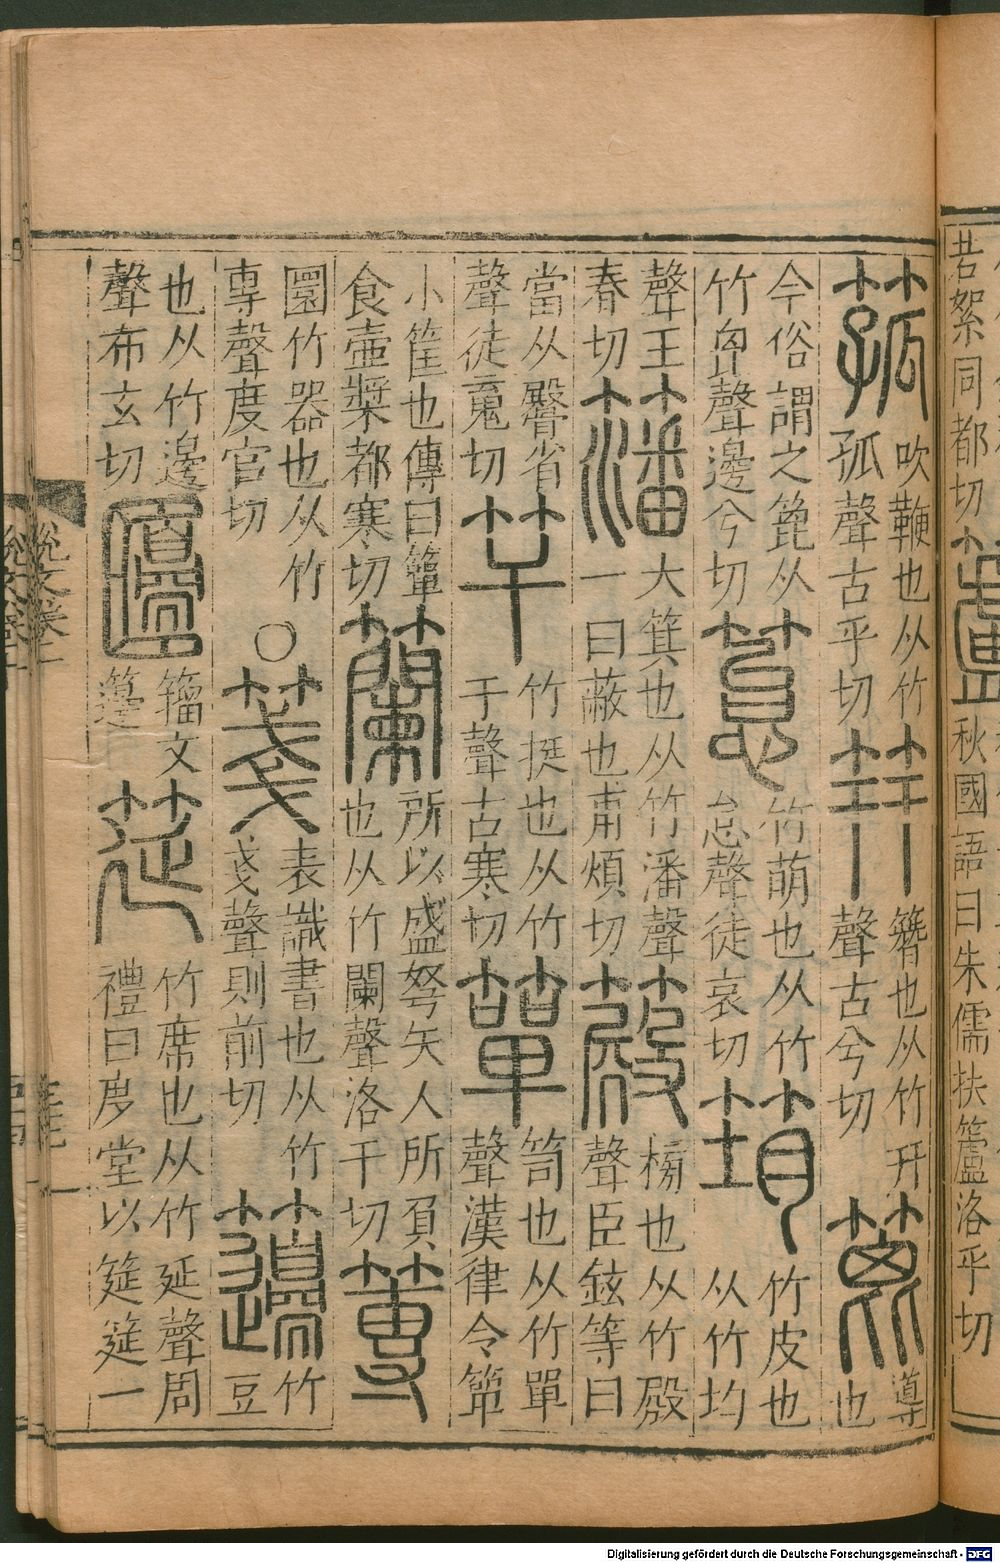 若絮同都切籚秋國語曰朱儒扶籚洛乎切
箛吹鞭也从竹孤聲古乎切筓簪也从竹幵聲古兮切篦導也
今俗謂之篦从竹𣬉聲邊兮切䈚竹萌也从竹怠聲徒哀切筠竹皮也从竹均
聲王春切籓大箕也从竹潘聲一曰蔽也甫煩切𥴫榜也从竹殿聲臣鉉等曰
當从臀省聲徒䰟切竿竹挺也从竹于聲古寒切簞笥也从竹單聲漢律令簞
小筐也傳曰簞食壺漿都寒切籣所以盛弩矢人所負也从竹闌聲洛干切篿
圜竹器也从竹專聲度官切○箋表識書也从竹戔聲則前切籩竹豆
也从竹邊聲布玄切𠥷籀文籩筵竹席也从竹延聲周禮曰度堂以筵筵一
Digitalisierung gefördert durch die Deutsche Forschungsgemeinschaft - DFG